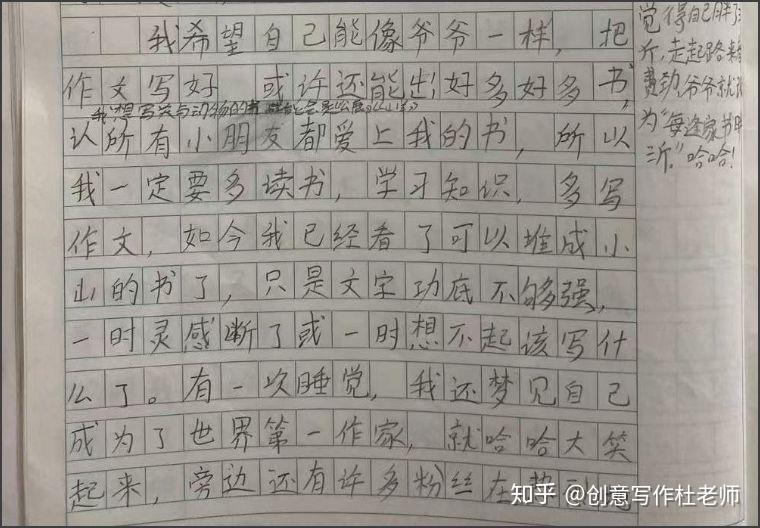 我希望自己能像爷爷一样，把
作文写好，或许还能出好多好多书，
认所有小朋友都爱上我的书，所以
我一定要多读书，学习知识，多写
作文，如今我已经看了可以堆成小
山的书了，只是文字功底不够强，
一时灵感断了或一时想不起该写什
么了。有一次睡觉，我还梦见自己
成为了世界第一作家，就哈哈大笑
起来，旁边还有许多粉丝在
觉得自己胖了
斤，走起路来
费劲，爷爷就
为“每逢家节胖
三斤”哈哈！
知乎 @创意写作杜老师